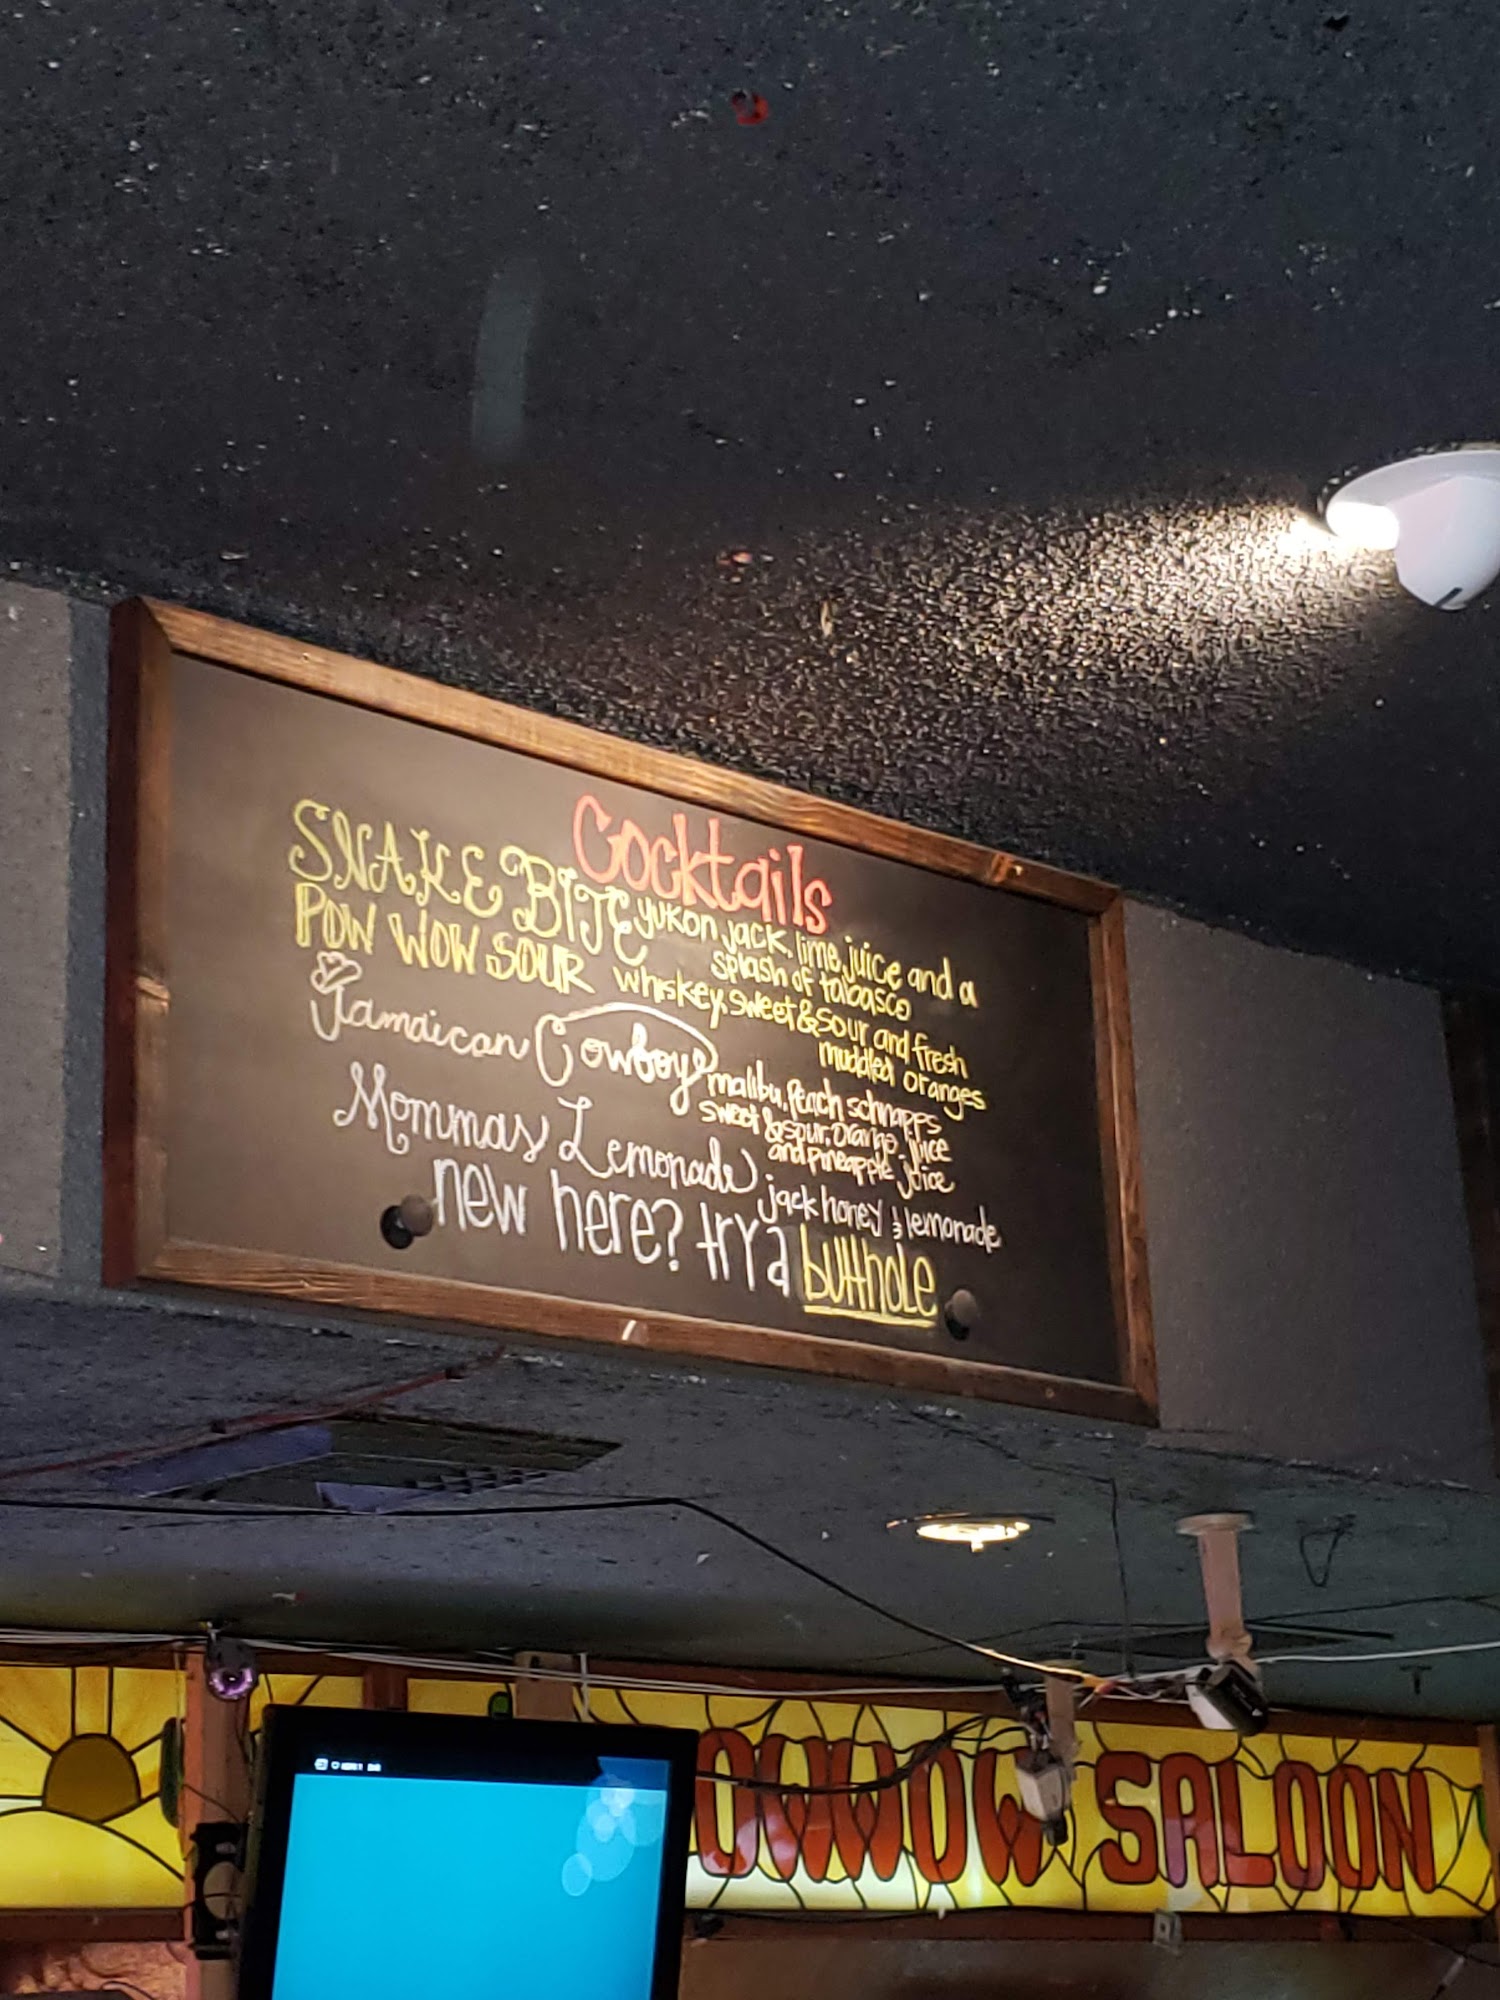 Cocktails
SNAKE BITE yukon jack, lime juice and a
splash of tabasco
POW WOW SOUR whiskey, sweet & sour and fresh
muddled oranges
Jamaican Cowboy malibu, Peach schnapps
sweet & sour, orange juice
and pineapple juice
Mommas Lemonade jack honey & lemonade
new here? try a butthole
OWWOW SALOON